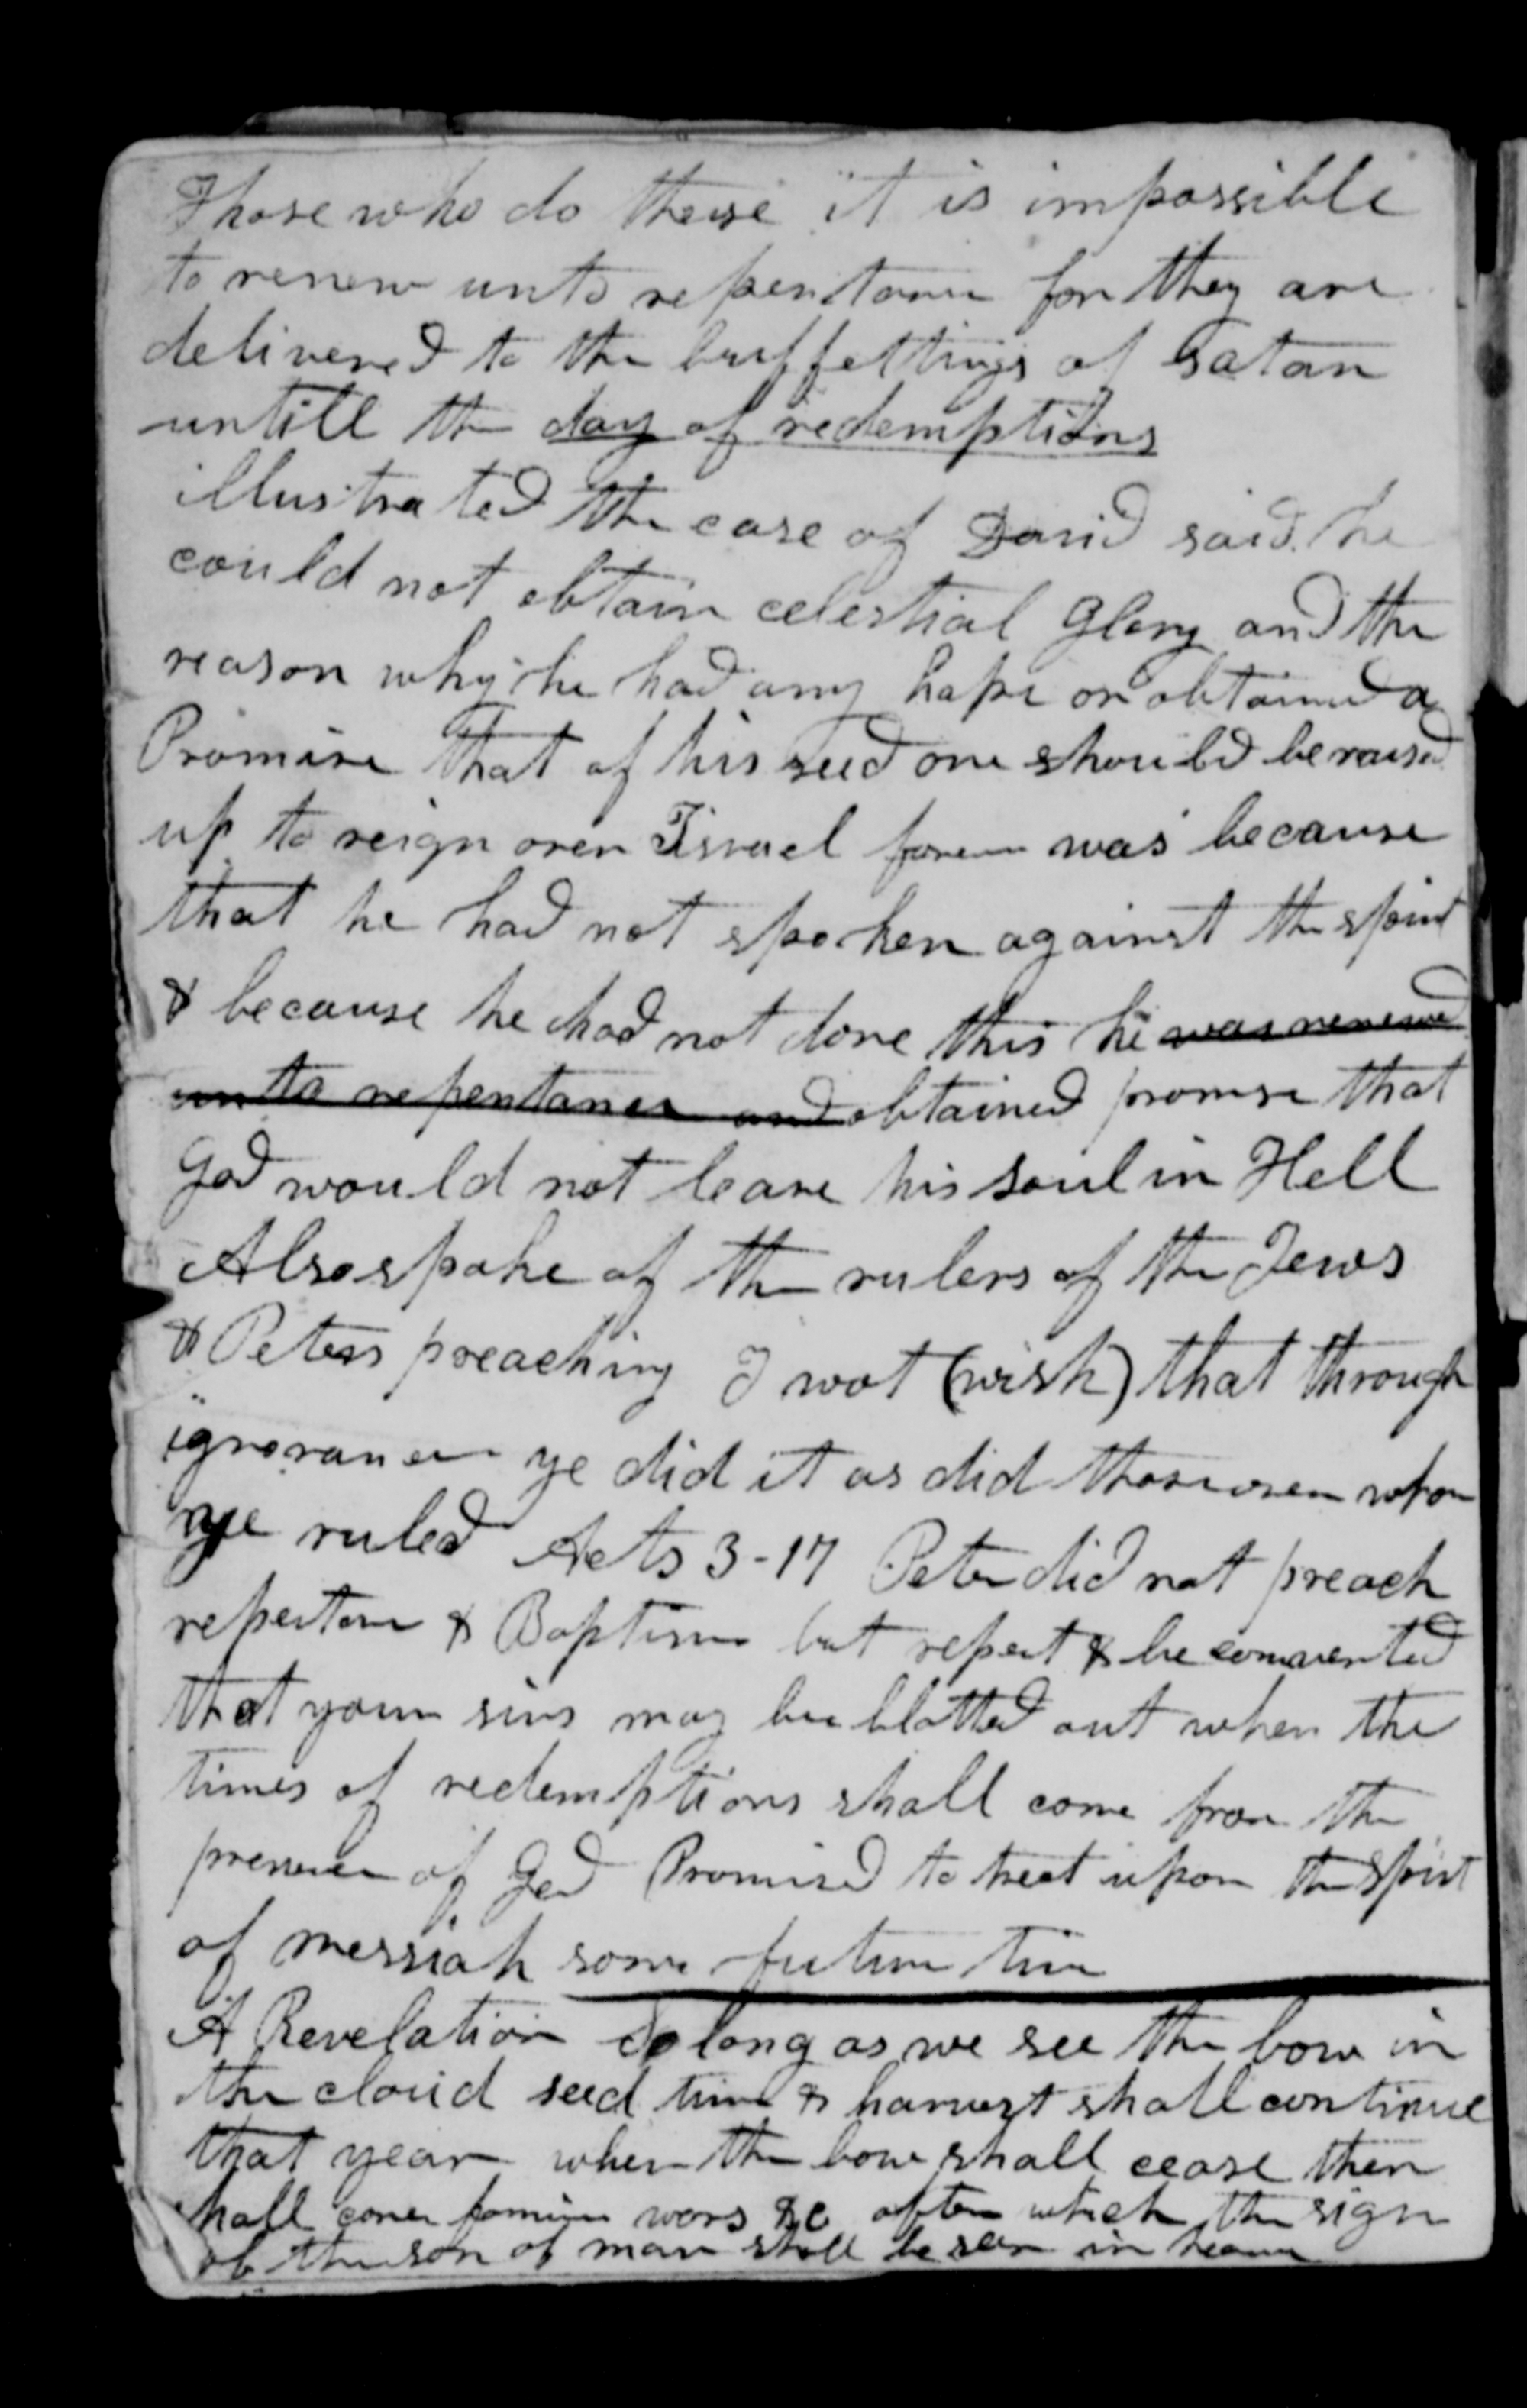 Those who do these it is impossible
to renew unto repentance for they are
delivered to the buffettings of Satan
untill the day of redemptions
illustrated the case of David said he
could not obtain celestial Glory and the
reason why he had any hope or obtained a
Promise that of his seed one should be raised
up to reign over Israel forever was because
that he had not spoken against the spirit
& because he had not done this he was renewed
unto repentance and obtained promise that
God would not leave his soul in Hell
Also spoke of the rulers of the Jews
& Peters preaching I wot (wish) that through
ignorance ye did it as did those over whom
ye ruled Acts 3-17 Peter did not preach
repentance & Baptism but repent & be converted
that your sins may be blotted out when the
times of redemptions shall come from the
presence of God Promised to treat upon the Spirit
of messiah some future time
A Revelation So long as we see the bow in
the cloud seed time & harvest shall continue
that year when the bow shall cease then
shall come famine wars &c after which the sign
of the son of man shall be seen in heaven